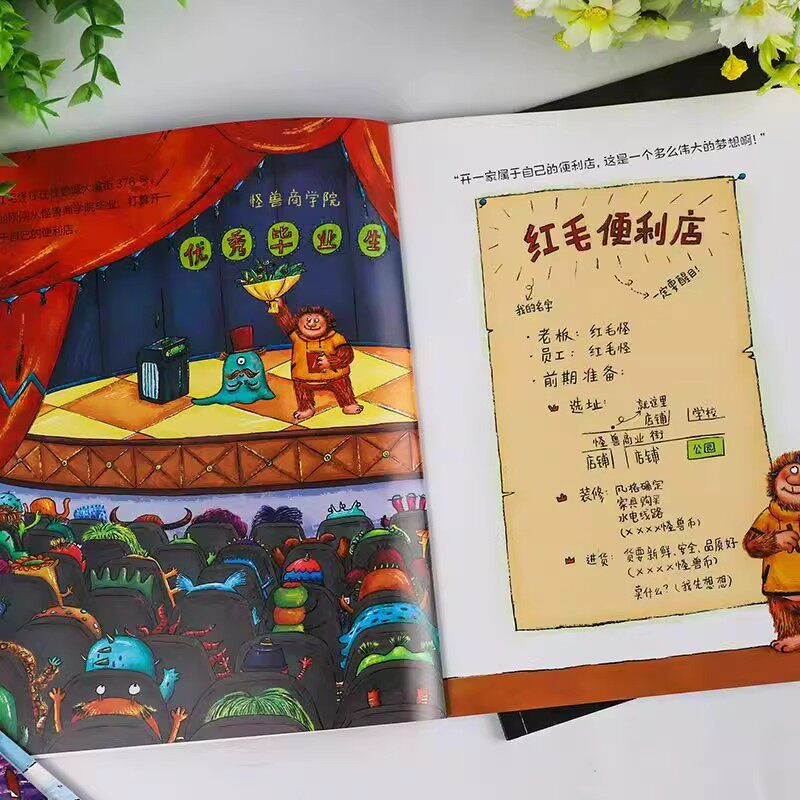 378号，
怪兽商学院毕业，打算开一
自己的便利店。
怪兽商学院
优秀毕业生
“开一家属于自己的便利店，这是一个多么伟大的梦想啊！”
红毛便利店
我的名字
一定要醒目！
·老板：红毛怪
·员工：红毛怪
·前期准备：
选址：
就这里
店铺
学校
怪兽商业街
店铺
店铺
公园
装修：风格确定
家具购买
水电线路
（××××怪兽币）
进货：货要新鲜、安全、品质好
（××××怪兽币）
卖什么？（我先想想）